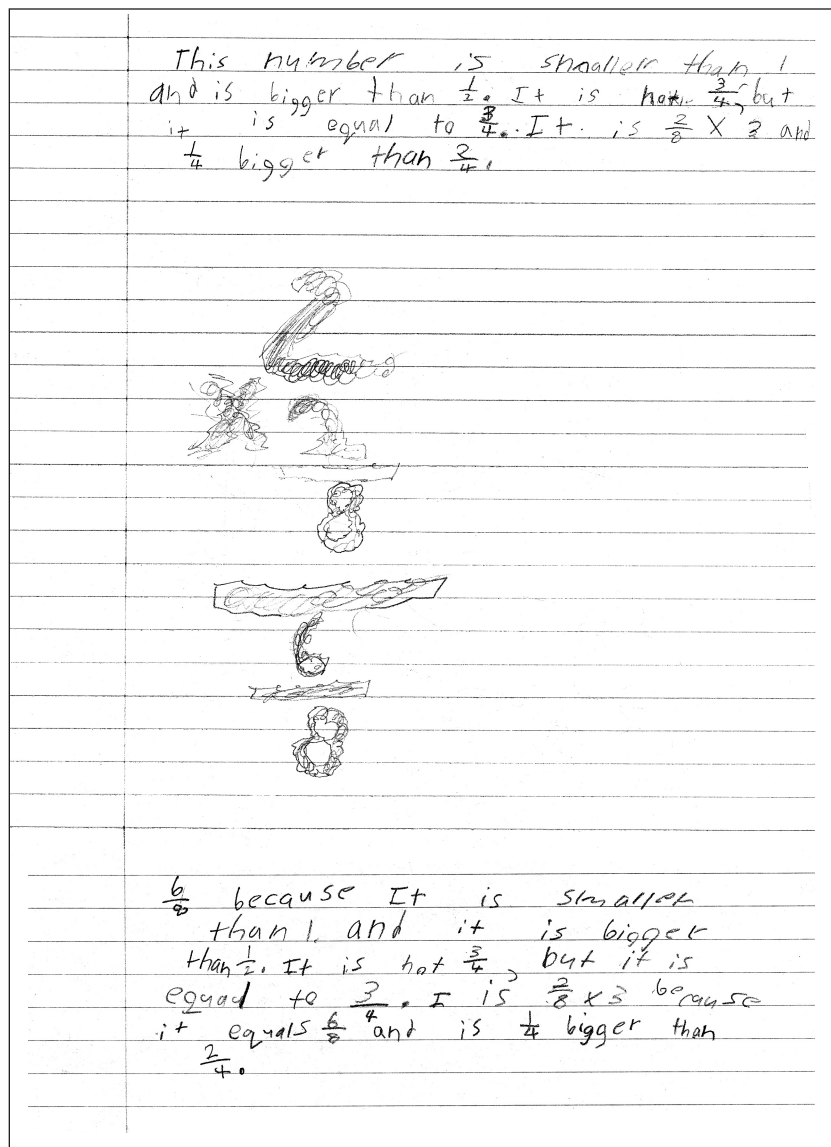 This number is smaller than 1
and is bigger than 1/2. It is not 3/4, but
it is equal to 3/4. It is 2/8 X 3 and
1/4 bigger than 2/4.
2
X 2
8
6
8
6/8 because It is smaller
than 1, and it is bigger
than 1/2. It is not 3/4, but it is
equal to 3/4. I is 2/8 x 3 because
it equals 6/8 and is 1/4 bigger than
2/4.